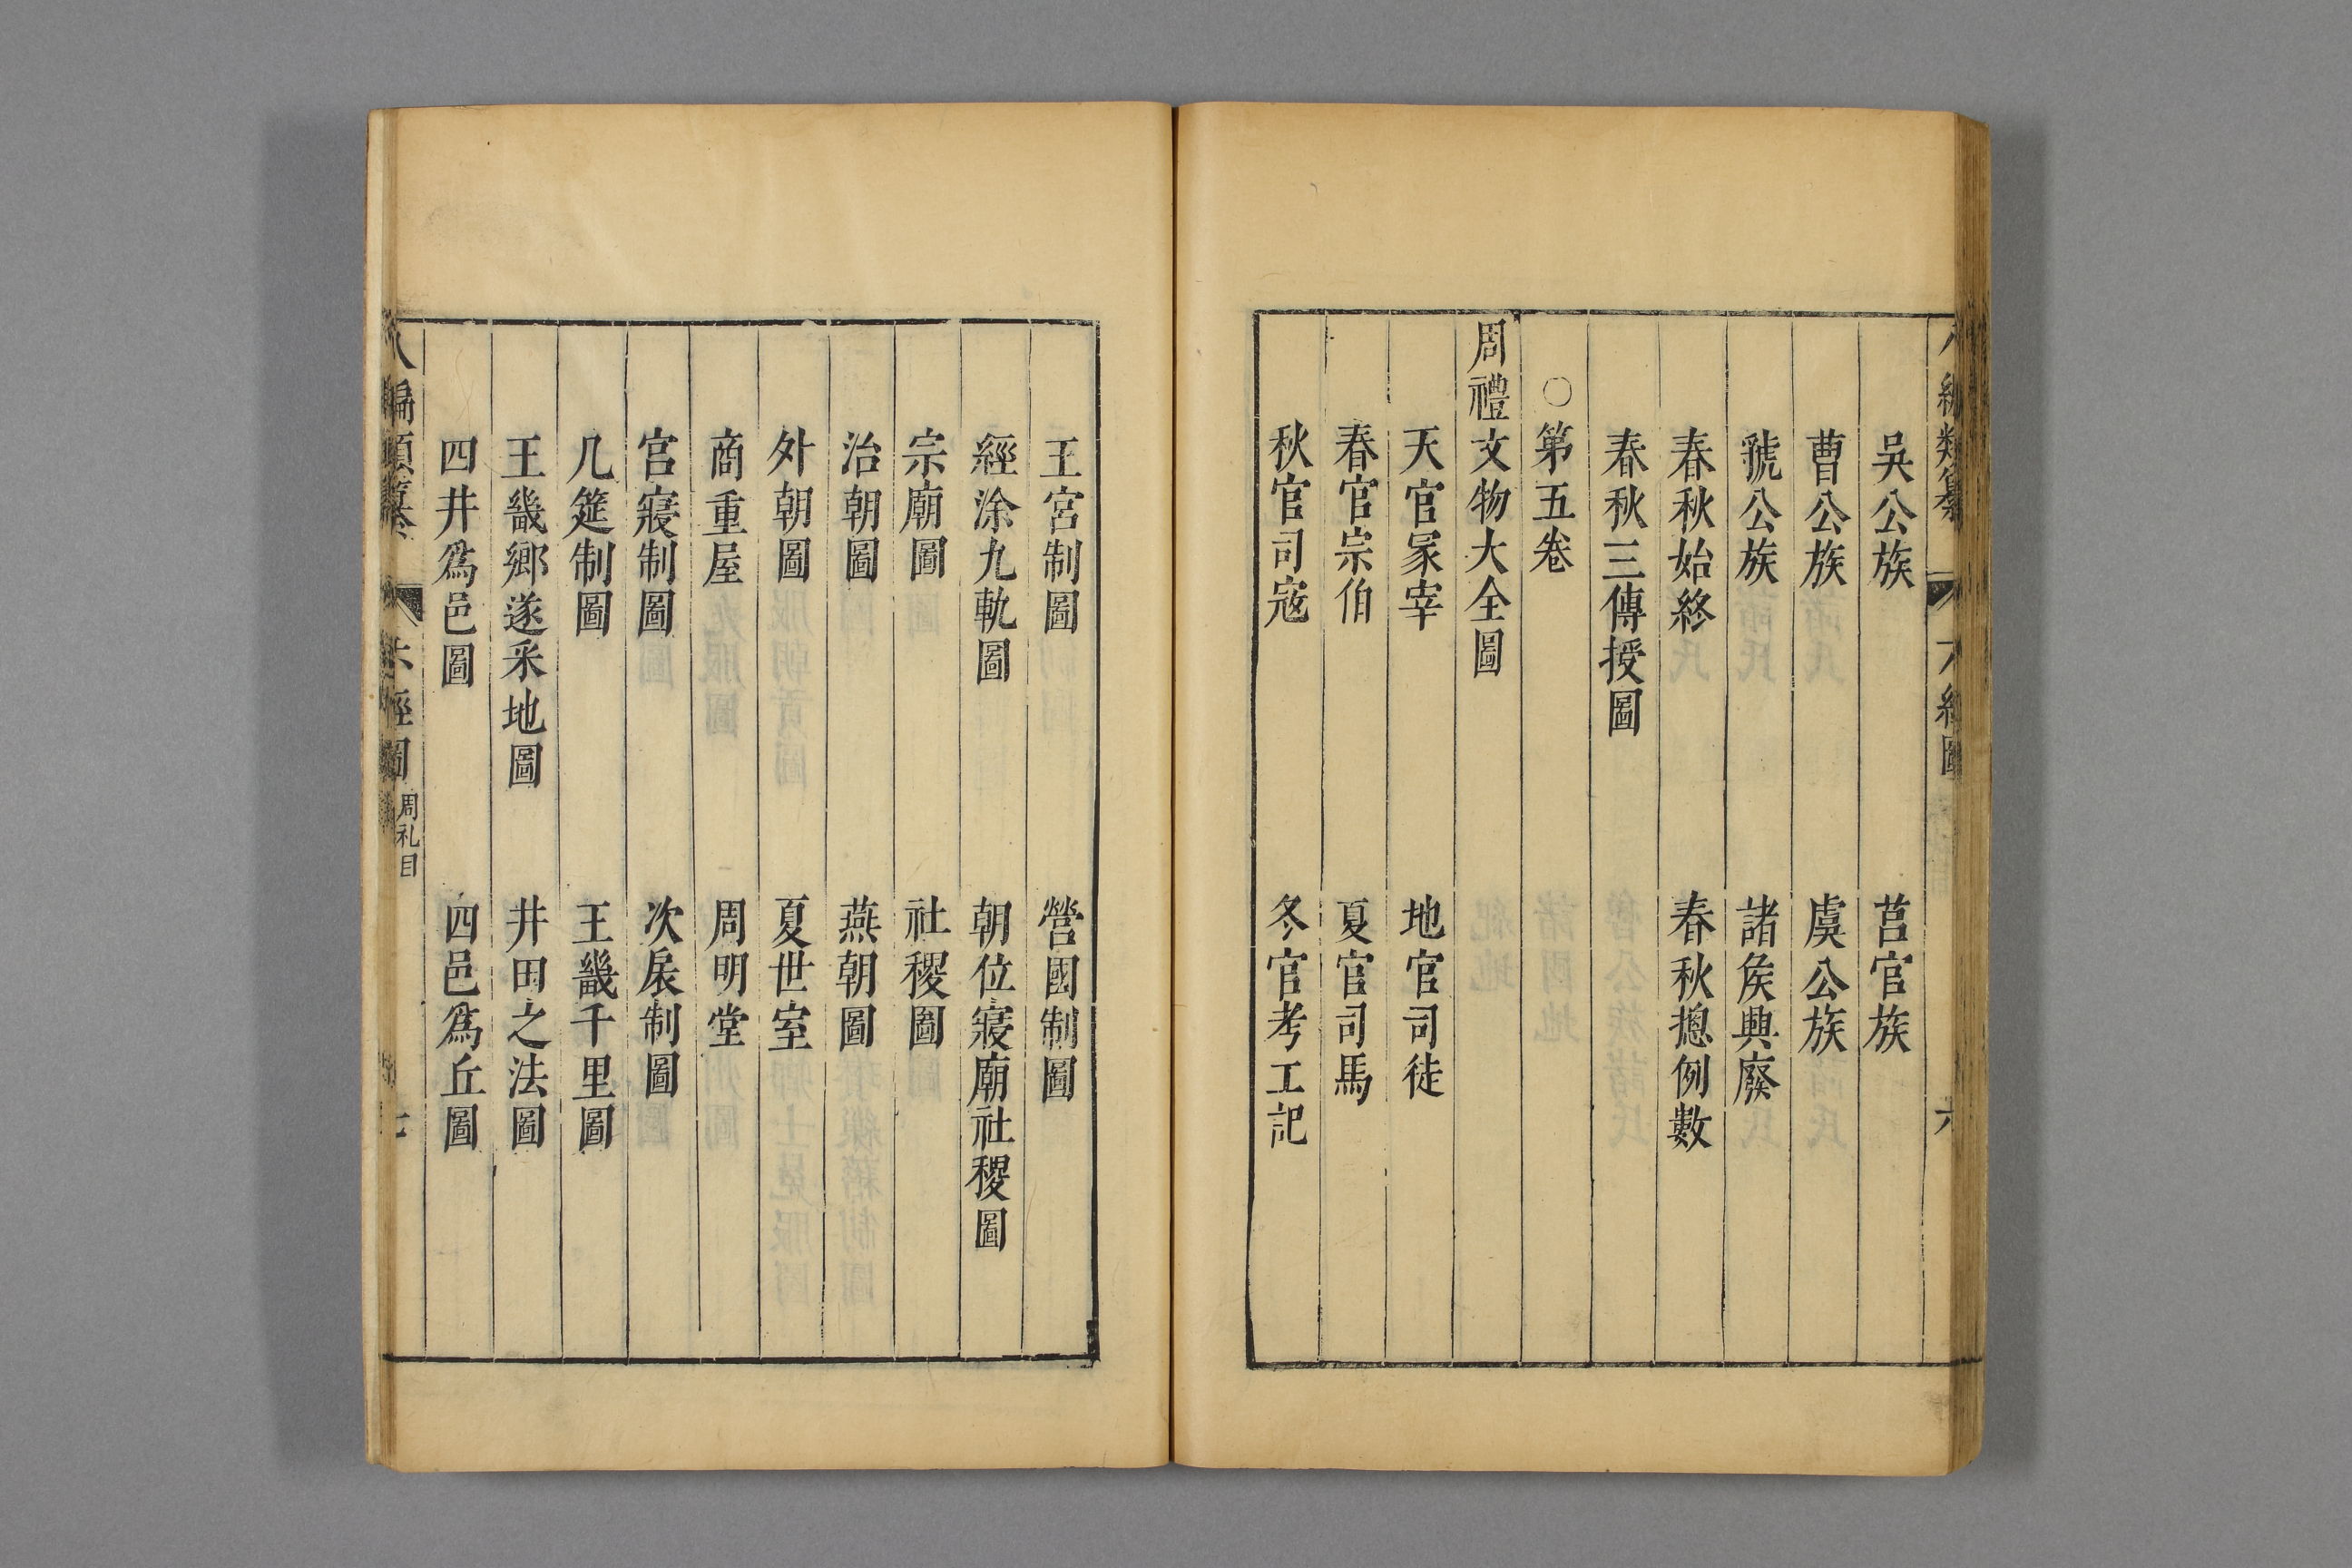 吳公族　莒官族
曹公族　虞公族
虢公族　諸矦興廢
春秋始終　春秋揔例數
春秋三傳授圖
○第五卷
周禮文物大全圖
天官冢宰　地官司徒
春官宗伯　夏官司馬
秋官司寇　冬官考工記
王宮制圖　營國制圖
經涂九軌圖　朝位寢廟社稷圖
宗廟圖　社稷圖
治朝圖　燕朝圖
外朝圖　夏世室
商重屋　周明堂
宮寢制圖　次扆制圖
几筵制圖　王畿千里圖
王畿鄉遂采地圖　井田之法圖
四井爲邑圖　四邑爲丘圖
八編類纂　六經圖　周礼目　七